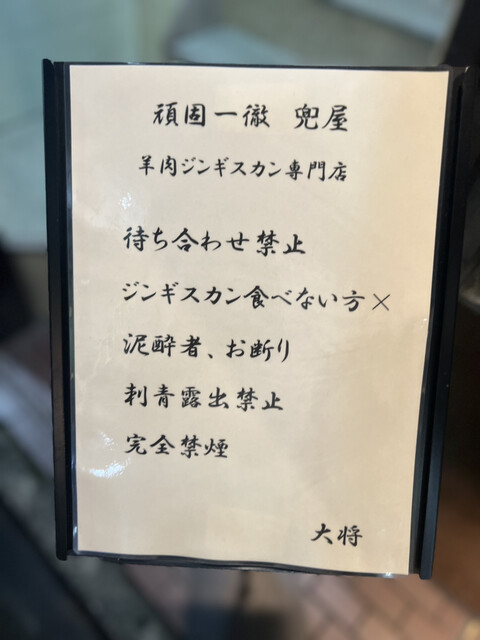 頑固一徹 兜屋
羊肉ジンギスカン専門店
待ち合わせ禁止
ジンギスカン食べない方×
泥酔者、お断り
刺青露出禁止
完全禁煙
大将